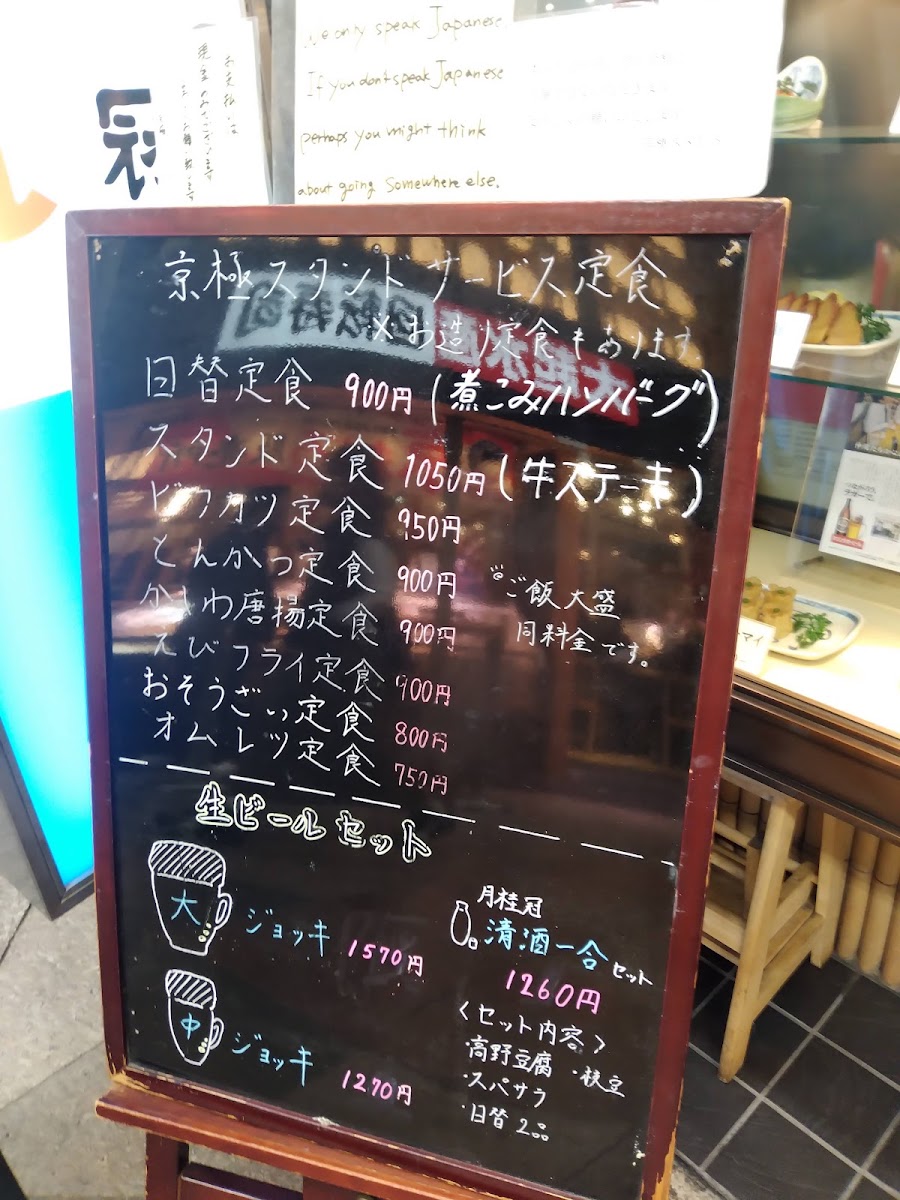 We only speak Japanese
If you don't speak Japanese
perhaps you might think
about going somewhere else.
お支払いは
京極スタンド サービス定食
※お造り定食もあります
日替定食 900円 (煮こみハンバーグ)
スタンド定食 1050円 (牛ステーキ)
ビフカツ定食 950円
とんかつ定食 900円
かしわ唐揚定食 900円
えびフライ定食 900円
おそうざい定食 800円
オムレツ定食 750円
ご飯大盛
同料金です。
生ビールセット
大 ジョッキ 1570円
中 ジョッキ 1270円
月桂冠
清酒一合セット
1260円
<セット内容>
・高野豆腐 ・枝豆
・スパサラ
・日替2品